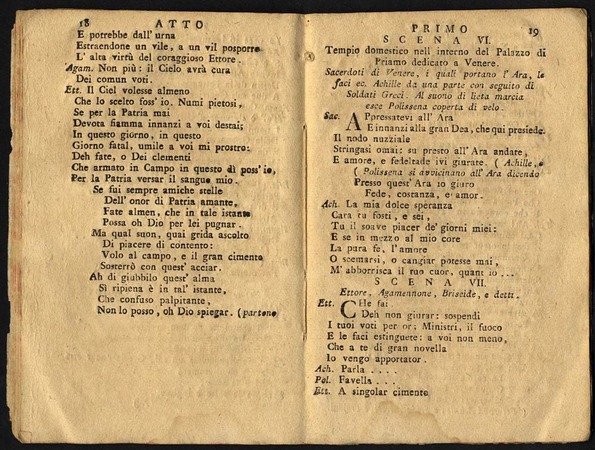 18 ATTO
E potrebbe dall' urna
Estraendone un vile, a un vil posporre
L' alta virtù del coraggioso Ettore.
Agam. Non più: il Cielo avrà cura
Dei comun voti.
Ett. Il Ciel volesse almeno
Che lo scelto foss' io. Numi pietosi,
Se per la Patria mai
Devota fiamma innanzi a voi destai;
In questo giorno, in questo
Giorno fatal, umile a voi mi prostro:
Deh fate, o Dei clementi
Che armato in Campo in questo dì poss' io,
Per la Patria versar il sangue mio.
Se fui sempre amiche stelle
Dell' onor di Patria amante,
Fate almen, che in tale istante
Possa oh Dio per lei pugnar.
Ma qual suon, quai grida ascolto
Di piacere di contento:
Volo al campo, e il gran cimento
Sosterrò con quest' acciar.
Ah di giubbilo quest' alma
Sì ripiena è in tal' istante,
Che confuso palpitante,
Non lo posso, oh Dio spiegar. (partono
PRIMO 19
SCENA VI.
Tempio domestico nell' interno del Palazzo di
Priamo dedicato a Venere.
Sacerdoti di Venere, i quali portano l' Ara, le
faci ec. Achille da una parte con seguito di
Soldati Greci. Al suono di lieta marcia
esce Polissena coperta di velo.
Sac. APpressatevi all' Ara
E innanzi alla gran Dea, che qui presiede.
Il nodo nuzziale
Stringasi omai: su presto all' Ara andate,
E amore, e fedeltade ivi giurate. ( Achille, e
( Polissena si avvicinano all' Ara dicendo
Presso quest' Ara io giuro
Fede, costanza, e amor.
Ach. La mia dolce speranza
Cara tu fosti, e sei,
Tu il soave piacer de' giorni miei:
E se in mezzo al mio core
La pura fe, l' amore
O scemarsi, o cangiar potesse mai,
M' abborrisca il tuo cuor, quant' io ...
SCENA VII.
Ettore, Agamennone, Briseide, e detti.
Ett. CHe fai.
Deh non giurar: sospendi
I tuoi voti per or; Ministri, il fuoco
E le faci estinguete: a voi non meno,
Che a te di gran novella
Io vengo apportator.
Ach. Parla ....
Pol. Favella ...
Ett. A singolar cimento